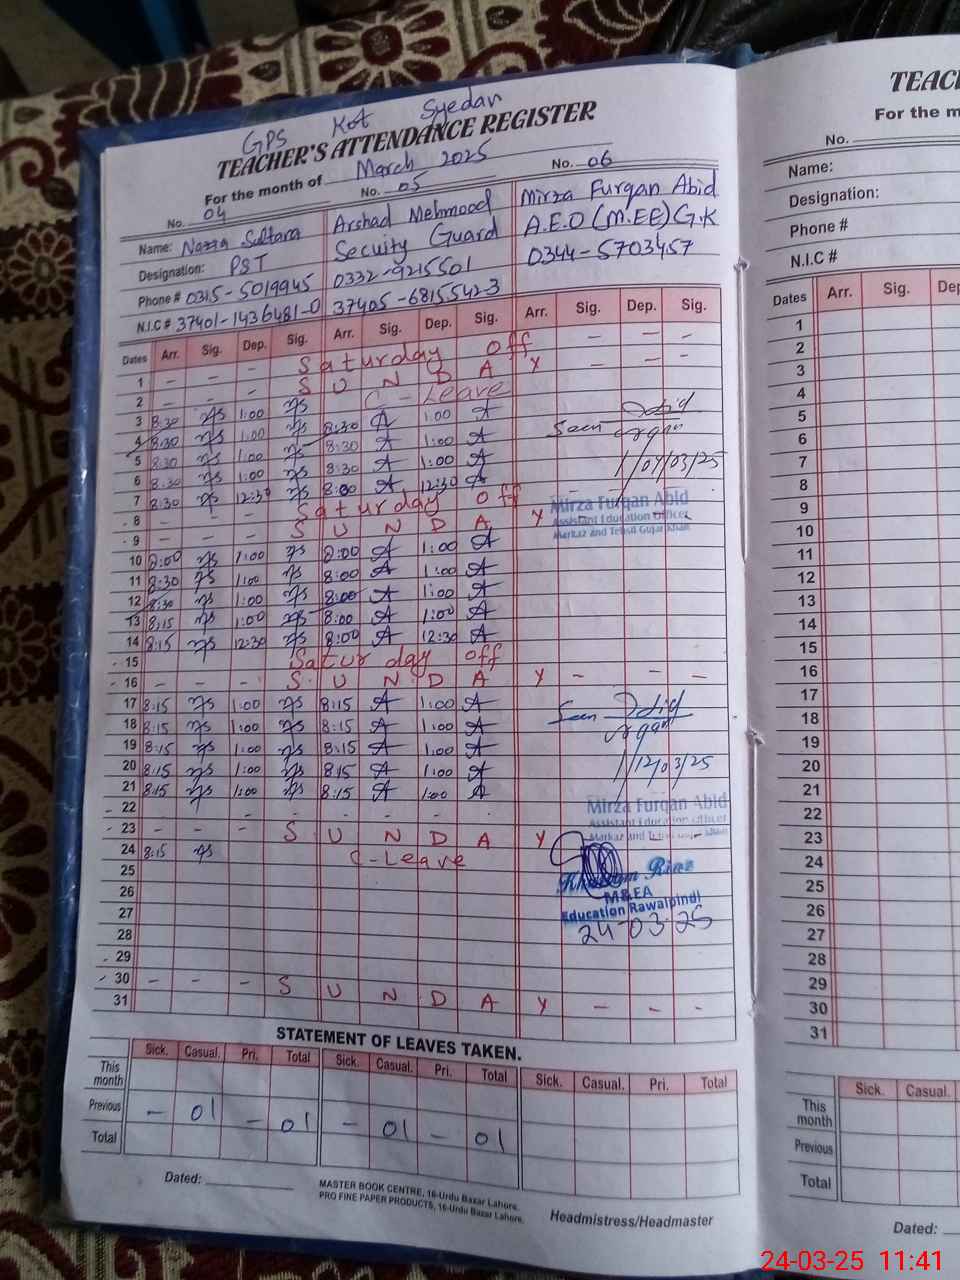 GPS Kot Syedan
TEACHER'S ATTENDANCE REGISTER
For the month of March 2025
No. 04 No. 05 No. 06
Name: Nazia Sultana Arshad Mehmood Mirza Furqan Abid
Designation: PST Secuity Guard A.E.O (M.EE) G.K
Phone # 0315-5019945 0332-9215501 0344-5703457
N.I.C # 37401-1436481-0 37405-6815542-3
Dates Arr. Sig. Dep. Sig. Arr. Sig. Dep. Sig. Arr. Sig. Dep. Sig.
1 - - - Saturday off - - -
2 - - - S U N D A Y - -
3 8:30 1:00 C-Leave
4 8:30 1:00 8:30 A 1:00 A
5 8:30 1:00 8:30 A 1:00 A
6 8:30 1:00 8:30 A 1:00 A
7 8:30 12:30 8:00 A 12:30 A
8 - - - Saturday off
9 - - - S U N D A Y
10 8:00 1:00 8:00 A 1:00 A
11 8:30 1:00 8:00 A 1:00 A
12 8:30 1:00 8:00 A 1:00 A
13 8:15 1:00 8:00 A 1:00 A
14 8:15 12:30 8:00 A 12:30 A
15 Saturday off
16 - - - S U N D A Y - - -
17 8:15 1:00 8:15 A 1:00 A
18 8:15 1:00 8:15 A 1:00 A
19 8:15 1:00 8:15 A 1:00 A
20 8:15 1:00 8:15 A 1:00 A
21 8:15 1:00 8:15 A 1:00 A
22 - - - - - -
23 - - - S U N D A Y
24 8:15 C-Leave
25
26
27
28
29
30 - - - S U N D A Y - - -
31
Seen
04/03/25
Mirza Furqan Abid
Assistant Education Officer
Markaz and Tehsil Gujar Khan
Seen
12/03/25
Mirza Furqan Abid
Assistant Education Officer
Markaz and Tehsil Gujar Khan
M&EA
Education Rawalpindi
24-03-25
STATEMENT OF LEAVES TAKEN.
Sick. Casual. Pri. Total Sick. Casual. Pri. Total Sick. Casual. Pri. Total
This month
Previous - 01 - 01 - 01 - 01
Total
Dated:
MASTER BOOK CENTRE, 16-Urdu Bazar Lahore.
PRO FINE PAPER PRODUCTS, 16-Urdu Bazar Lahore.
Headmistress/Headmaster
TEAC
For the m
No.
Name:
Designation:
Phone #
N.I.C #
Dates Arr. Sig. Dep
1
2
3
4
5
6
7
8
9
10
11
12
13
14
15
16
17
18
19
20
21
22
23
24
25
26
27
28
29
30
31
Sick. Casual.
This month
Previous
Total
Dated:
24-03-25 11:41